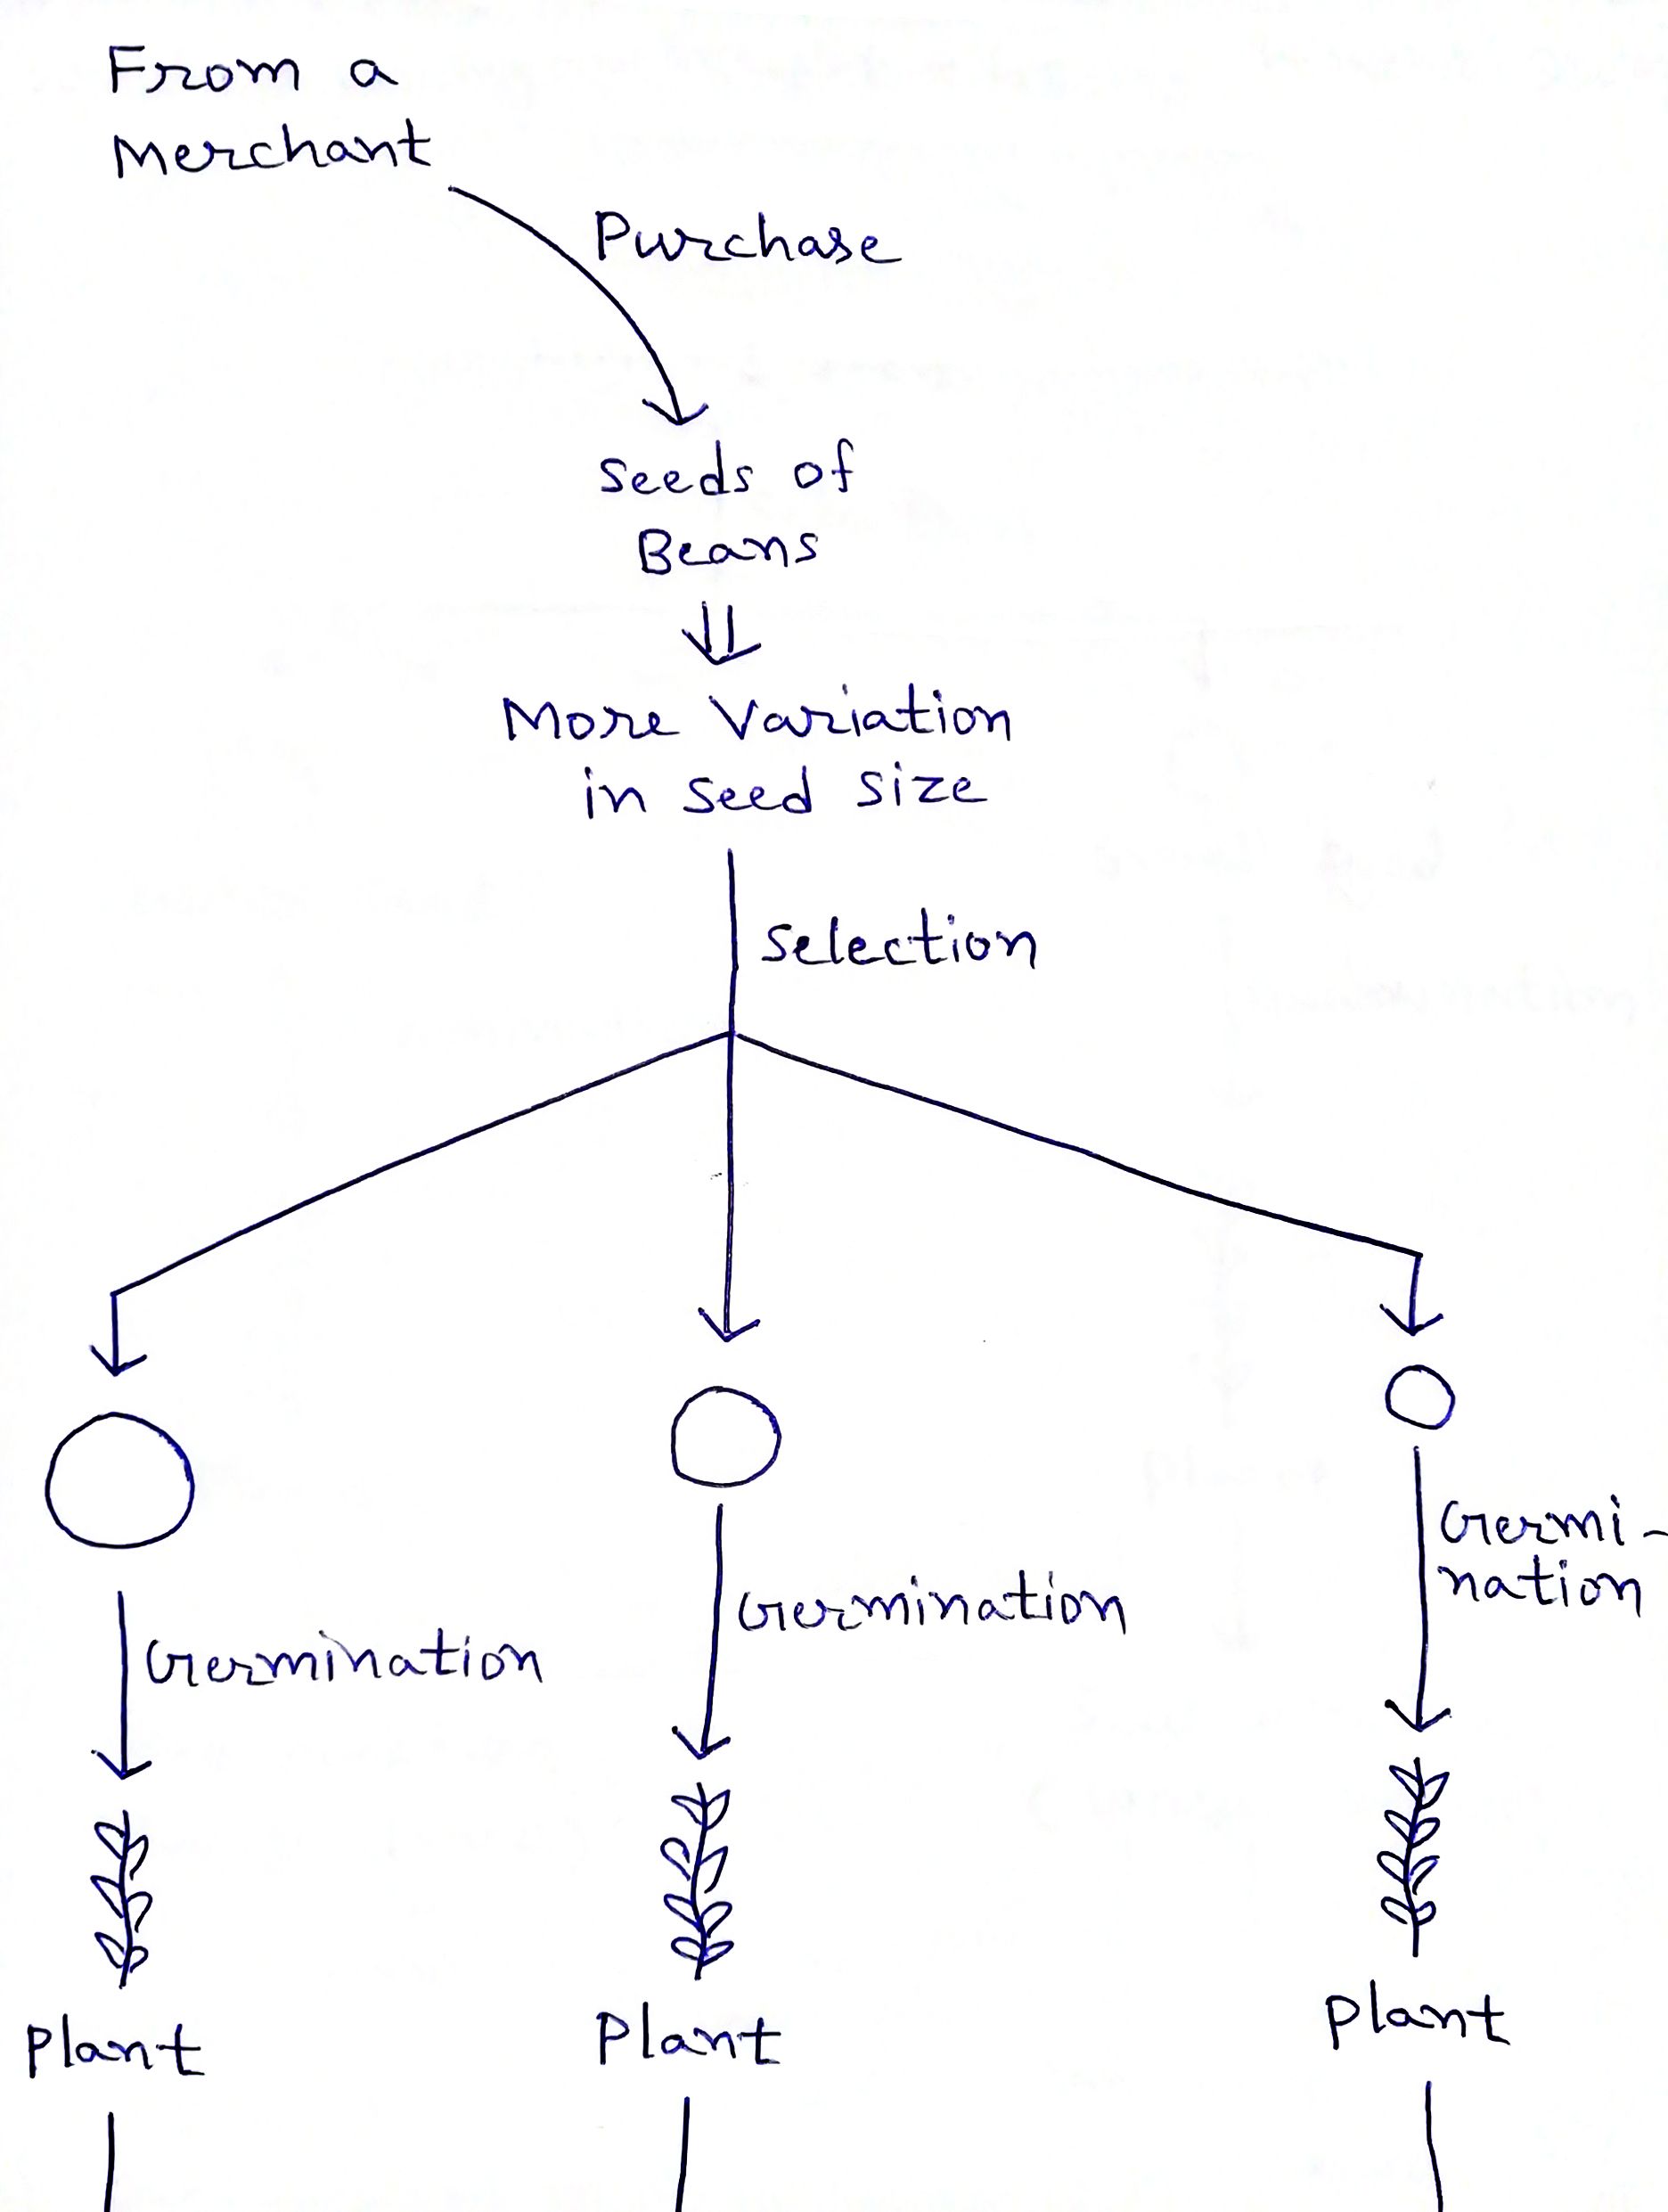 From a
Merchant
Purchase
Seeds of
Beans
More Variation
in seed size
Selection
Germi-
nation
Germination
Germination
Plant
Plant
Plant